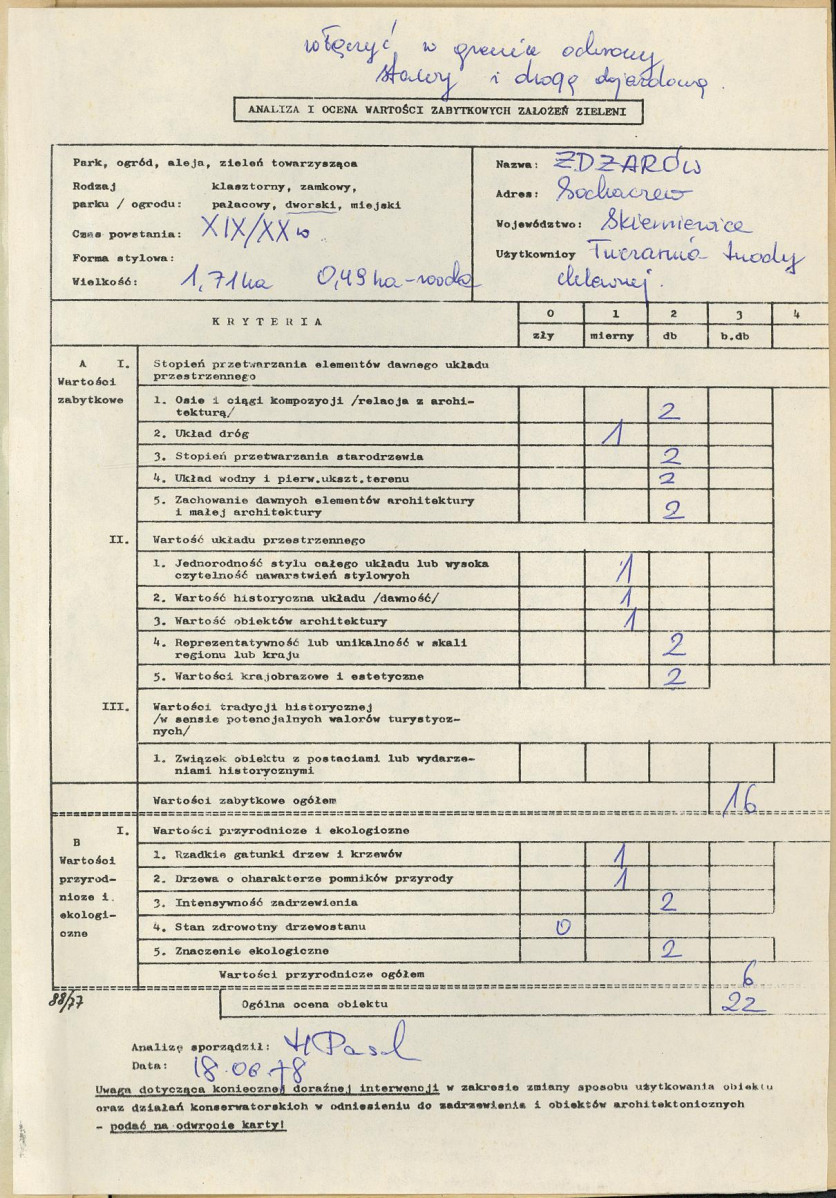 włączyć w granice ochrony
stawy i drogę dojazdową.
ANALIZA I OCENA WARTOŚCI ZABYTKOWYCH ZAŁOŻEŃ ZIELENI
Park, ogród, aleja, zieleń towarzysząca
Rodzaj klasztorny, zamkowy,
parku / ogrodu: pałacowy, dworski, miejski
Czas powstania: XIX/XX w.
Forma stylowa:
Wielkość: 1,71 ha 0,49 ha - woda
Nazwa: ZDŻARÓW
Adres: Sochaczew
Województwo: Skierniewice
Użytkownicy Tuczarnia trzody
chlewnej.
KRYTERIA 0 1 2 3 4
zły mierny db b.db
A I. Stopień przetwarzania elementów dawnego układu
Wartości przestrzennego
zabytkowe 1. Osie i ciągi kompozycji /relacja z archi-
tekturą/ 2
2. Układ dróg 1
3. Stopień przetwarzania starodrzewia 2
4. Układ wodny i pierw.ukszt.terenu 2
5. Zachowanie dawnych elementów architektury
i małej architektury 2
II. Wartość układu przestrzennego
1. Jednorodność stylu całego układu lub wysoka
czytelność nawarstwień stylowych 1
2. Wartość historyczna układu /dawność/ 1
3. Wartość obiektów architektury 1
4. Reprezentatywność lub unikalność w skali
regionu lub kraju 2
5. Wartości krajobrazowe i estetyczne 2
III. Wartości tradycji historycznej
/w sensie potencjalnych walorów turystycz-
nych/
1. Związek obiektu z postaciami lub wydarze-
niami historycznymi
Wartości zabytkowe ogółem 16
B I. Wartości przyrodnicze i ekologiczne
Wartości 1. Rzadkie gatunki drzew i krzewów 1
przyrod- 2. Drzewa o charakterze pomników przyrody 1
nicze i. 3. Intensywność zadrzewienia 2
ekologi- 4. Stan zdrowotny drzewostanu 0
czne 5. Znaczenie ekologiczne 2
Wartości przyrodnicze ogółem 6
88/77 Ogólna ocena obiektu 22
Analizę sporządził:
Data: 18.06.78
Uwaga dotycząca koniecznej doraźnej interwencji w zakresie zmiany sposobu użytkowania obiektu
oraz działań konserwatorskich w odniesieniu do zadrzewienia i obiektów architektonicznych
- podać na odwrocie karty!